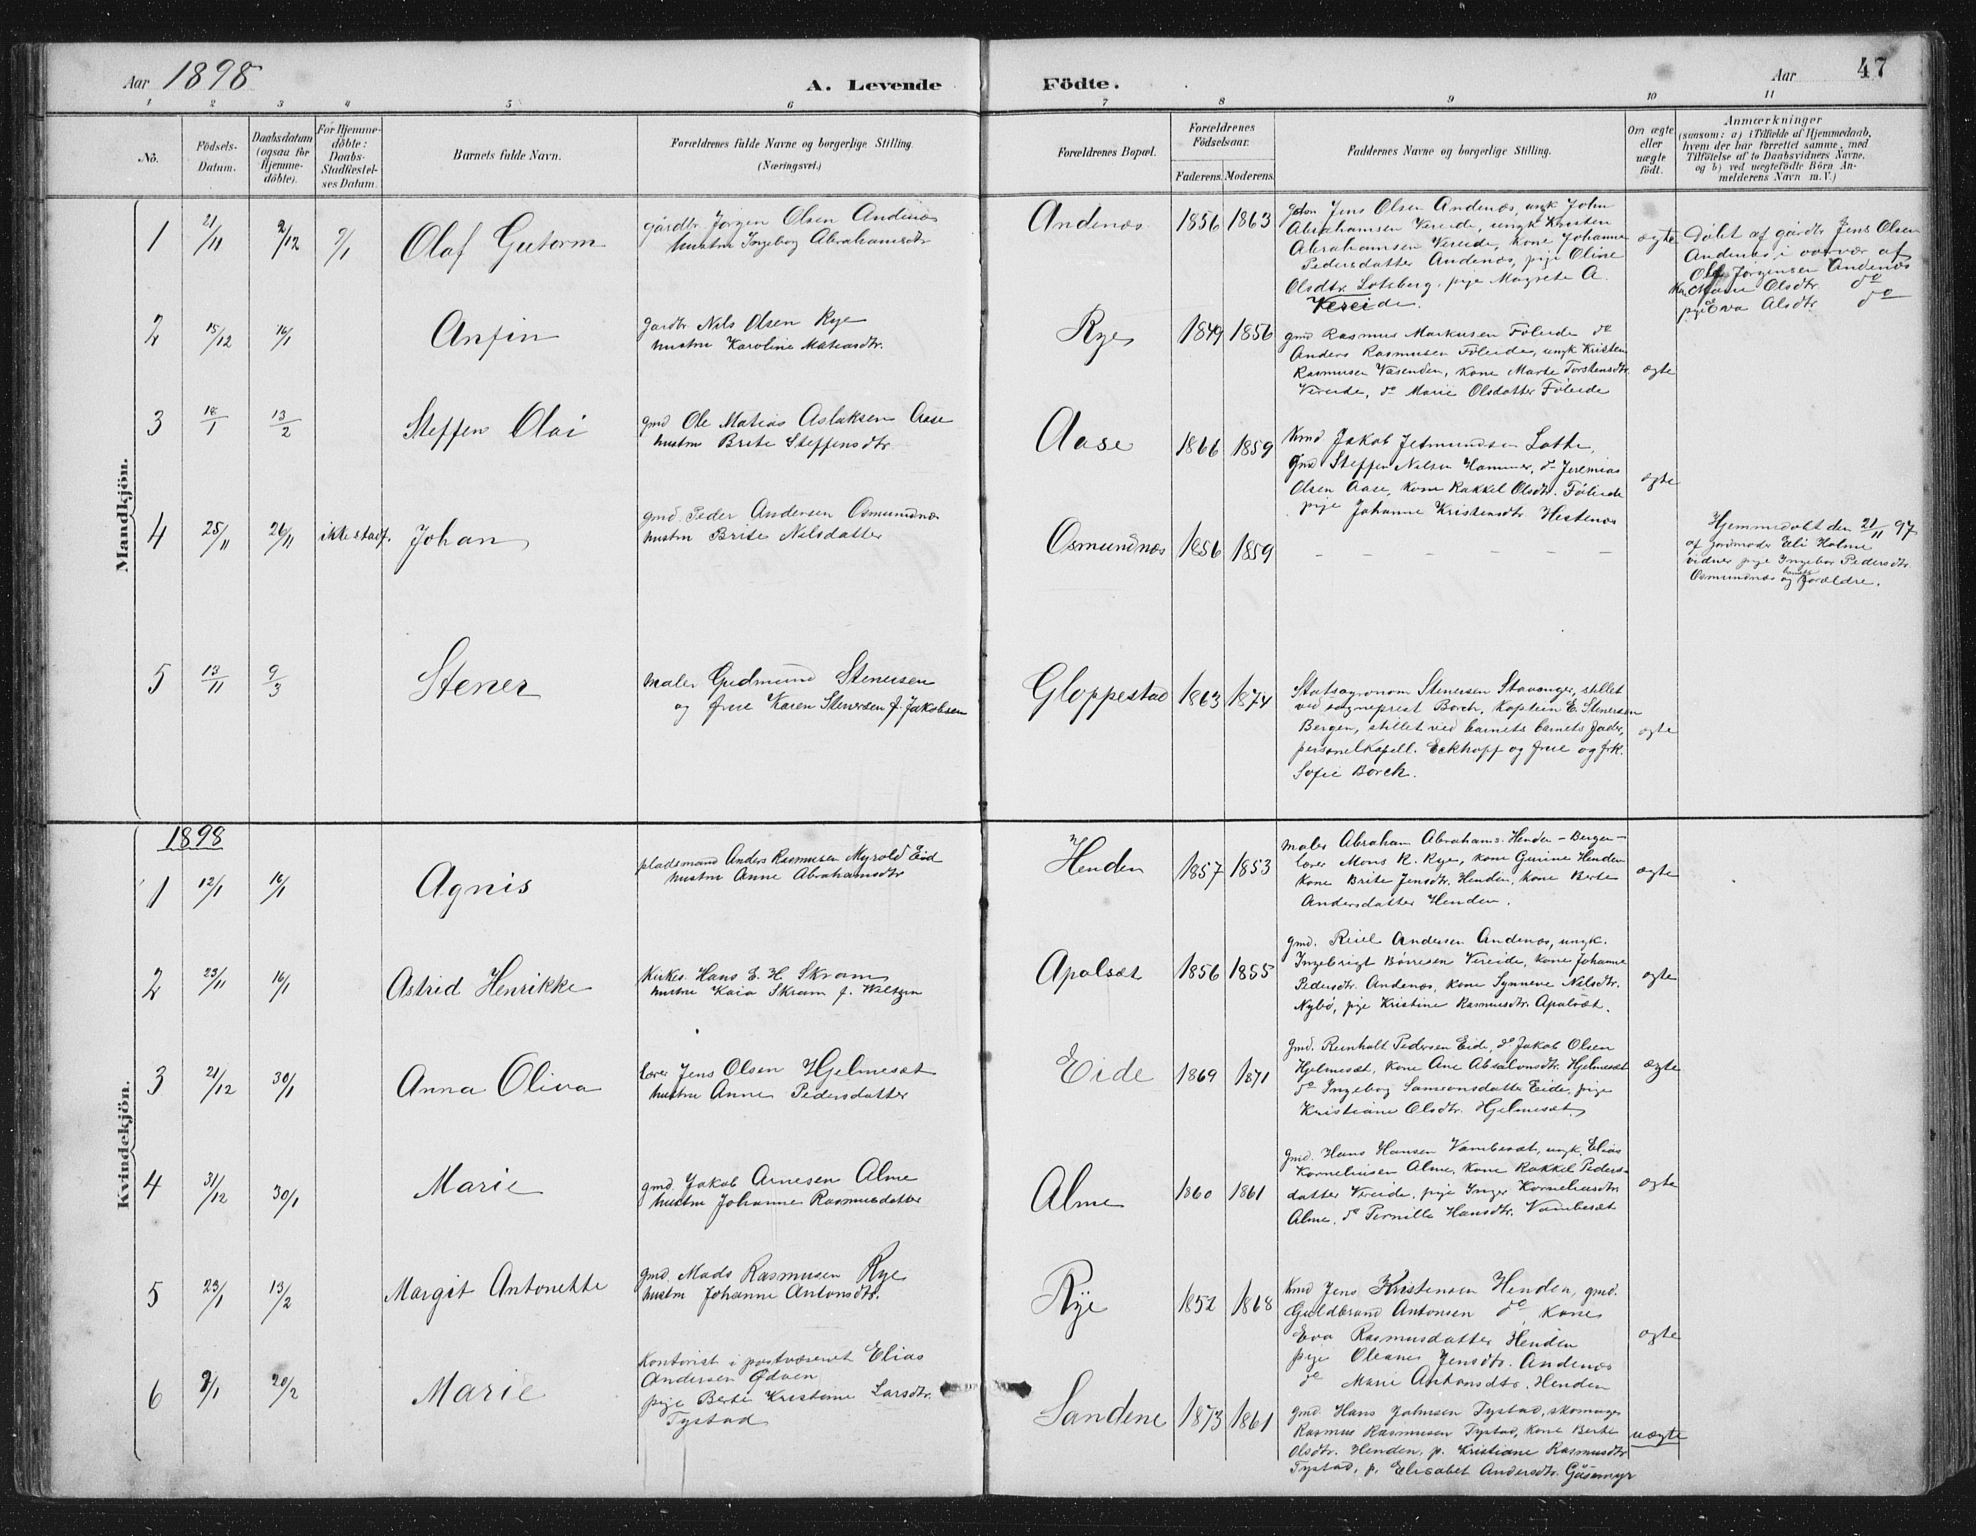 Aar 1898 A. Levende Födte. Aar 47
1 2 3 4 5 6 7 8 9 10 11
No.
Födsels-Datum.
Daabsdatum (ogsaa for Hjemmedöbte).
For Hjemmedöbte: Daabs-Stadfæstelses Datum.
Barnets fulde Navn.
Forældrenes fulde Navne og borgerlige Stilling.
(Næringsvei.)
Forældrenes Bopæl.
Forældrenes Födselsaar.
Faderens. Moderens.
Faddernes Navne og borgerlige Stilling.
Om ægte eller uægte födt.
Anmærkninger
(saasom: a) i Tilfælde af Hjemmedaab,
hvem der har forrettet samme, med
Tilföielse af to Daabsvidners Navne,
og b) ved uægtefödte Börn Anmelderens Navn m. V.)
Mandkjön.
1 21/11 2/12 9/1 Olaf Gutorm
gårdbr Jørgen Olsen Andenæs
hustru Ingebog Abrahamsdtr
Andenæs 1856 1863
Jens Olsen Andenæs, ungk John
Abrahamsen Vereide, ungk Kristen
Abrahamsen Vereide, kone Johanne
Pedersdatter Andenæs, pige Oline
Olsdtr. Lotsberg, pige Magrete A.
Vereide.
ægte
Døbt af gårdbr Jens Olsen
Andenæs i overvær af
Jørgensen Andenæs
Marie Olsdtr. do
pige Eva Olsdtr. do
2 15/12 16/1 Anfin
gårdbr Nils Olsen Rye
hustru Karoline Matiasdtr.
Rye 1849 1856
gmd Rasmus Markusen Føleide do
Anders Rasmusen Føleide, ungk Kristen
Rasmusen Vasenden, kone Marte Torstensdtr.
Vereide, do Marie Olsdatter Føleide
ægte
3 18/1 13/2 Steffen Olai
gmd Ole Matias Aslaksen Aase
hustru Brite Steffensdtr
Aase 1866 1859
kmd Jakob Jetmundsen Lothe,
Gmd Steffen Nilsen Hammer, do Jeremias
Olsen Aase, kone Rakkel Olsdtr. Føleide
pige Johanne Kristensdtr Hestenæs
ægte
4 25/11 26/11 ikke stadf. Johan
gmd. Peder Andersen Osmundnæs
hustru Brite Nilsdatter
Osmundnæs 1856 1859
– – – – – –
Hjemmedøbt den 21/11 97
af jordmoder Eli Holme
vidner pige Ingebor Pedersdtr
Osmundnæs og barnets forældre.
5 13/11 9/3 Stener
maler Gudmund Stenersen
og frue Karen Stenersen f. Jakobsen
Gloppestad 1863 1874
Statsagronom Stenersen Stavanger, stillet
ved sogneprest Borch, kaptein E. Stenersen
Bergen, stillet ved barnets barnets fader,
personelkapell. Eckhoff og frue og frk.
Sofie Borch.
ægte
1898
Kvindekjön.
1 12/1 16/1 Agnis
pladsmand Anders Rasmusen Myrold Eid
hustru Anne Abrahamsdtr
Henden 1857 1853
maler Abraham Abrahams. Henden – Bergen –
lærer Mons R. Rye, kone Gurine Henden
kone Brite Jensdtr. Henden, kone Berte
Andersdatter Henden.
ægte
2 23/11 16/1 Astrid Henrikke
kirkes. Hans E. H. Skram
hustru Kaia Skram f.
Apalsæt 1856 1855
gmd. Reiel Andersen Andenæs, ungk.
Ingebrigt Børresen Vereide, kone Johanne
Pedersdtr. Andenæs, kone Synneve Nilsdtr.
Nybø, pige Kristine Rasmusdtr. Apalsæt.
ægte
3 21/12 30/1 Anna Oliva
lærer Jens Olsen Hjelmesæt
hustru Anne Pedersdatter
Eide 1869 1871
gmd. Reinholt Pedersen Eide, do Jakob Olsen
Hjelmesæt, kone Ane Absalonsdtr. Hjelmesæt
do Ingebog Samsonsdatter Eide, pige
Kristiane Olsdtr. Hjelmesæt
ægte
4 31/12 30/1 Marie
gmd. Jakob Arnesen Alme
hustru Johanne Rasmusdatter
Alme 1860 1861
gmd. Hans Hansen Vambesæt, ungk. Elias
Korneliusen Alme, kone Rakkel Peders-
datter Vereide, pige Inger Korneliusdtr.
Alme, do Pernille Hansdtr. Vambesæt
ægte
5 23/1 13/2 Margit Antonette
gmd. Mads Rasmusen Rye
hustru Johanne Antonsdtr.
Rye 1852 1868
kmd Jens Kristensen Henden, gmd.
Guldbrand Antonsen do, kone
Eva Rasmusdatter Henden
pige Oleane Jensdtr. Andenæs
do Marie Antonsdtr. Henden
ægte
6 9/1 20/2 Marie
kontorist i postvæsenet Elias
Andersen Ødven
pige Berte Kristine Larsdtr.
Tystad
Sandene 1873 1861
gmd. Hans Johnsen Tystad, skomager
Rasmus Rasmusen Tystad, kone Berte
Olsdtr. Henden, p. Kristiane Rasmusdtr
Tystad, p. Elisabet Andersdtr. Gåsemyr
uægte